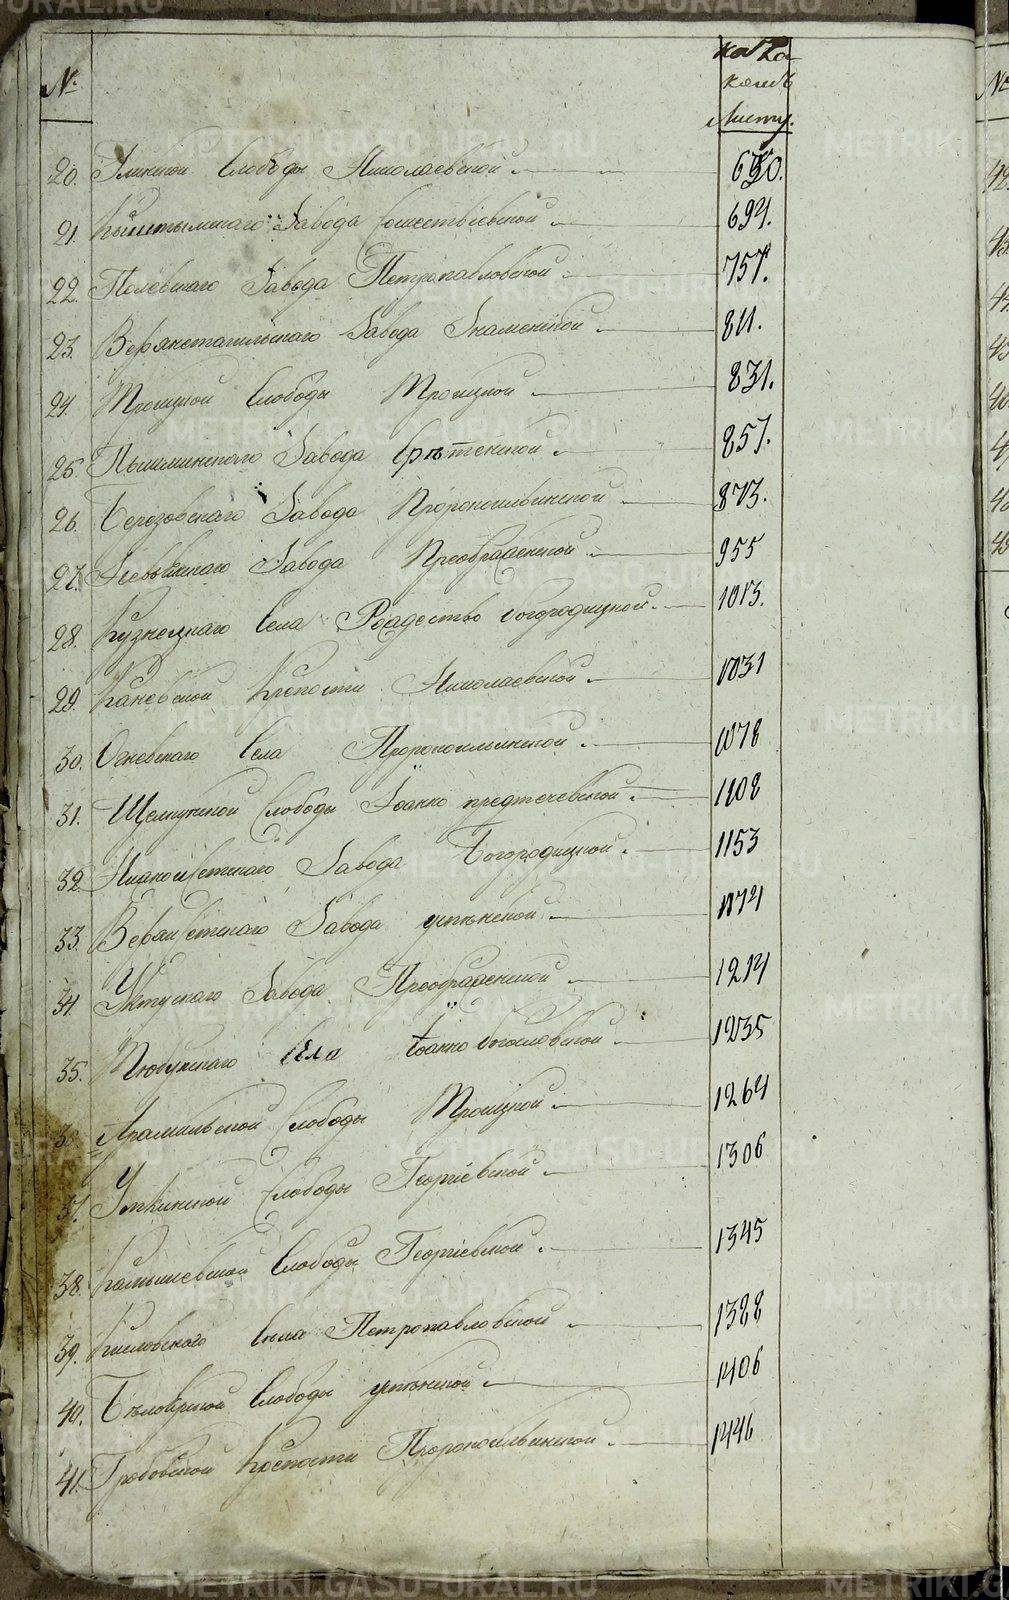 №
на ка
комъ
листу.
20. Глинской Слободы Николаевской 650.
21. Кыштымскаго Завода Сошествіевской 694.
22. Полевскаго Завода Петропавловской 757.
23. Верхнетагильскаго Завода Знаменской 811.
24. Троицкой Слободы Троицкой 831.
25. Пышминскаго Завода Срѣтенской 857.
26. Березовскаго Завода Пророкоильинской 873.
27. Невьянскаго Завода Преображенской 955
28. Кузнецкаго Села Рождество богородицкой 1013.
29. Крѣпости Николаевской 1031
30. Огневскаго Села Пророкоильинской 1078
31. Щелкунской Слободы Іоанно предтечевской 1108
32. Нижноисетскаго Завода Богородицкой 1153
33. Верхисетскаго Завода успенской 1174
34. Уктускаго Завода Преображенской 1214
35. Тюбукскаго Села Іоанно богословской 1235
36. Арамильской Слободы Троицкой 1264
37. Уткинской Слободы Георгіевской 1306
38. Камышевской Слободы Георгіевской 1345
39. Кисловскаго Села Петропавловской 1388
40. Бѣлоярской Слободы успенской 1406
41. Гробовской Крѣпости Пророкоильинской 1446
METRIKI.GASO-URAL.RU